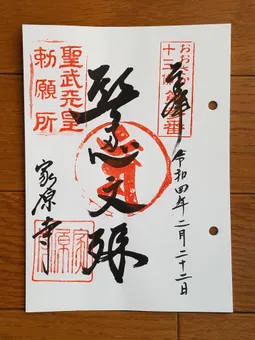 おおさか十三佛
番
奉拝
令和四年二月二十二日
智恵文殊
聖武天皇
勅願所
家原寺
家原寺